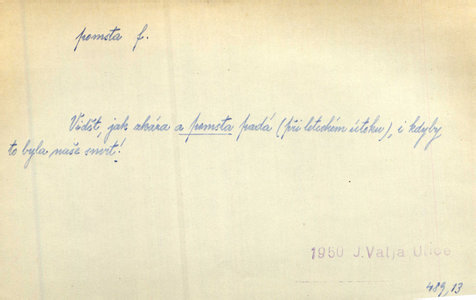 pomsta f.
Vidět, jak zkáza a pomsta padá (při leteckém útoku), i kdyby
to byla naše smrt!
1950 J.Valja Ulice
489,13